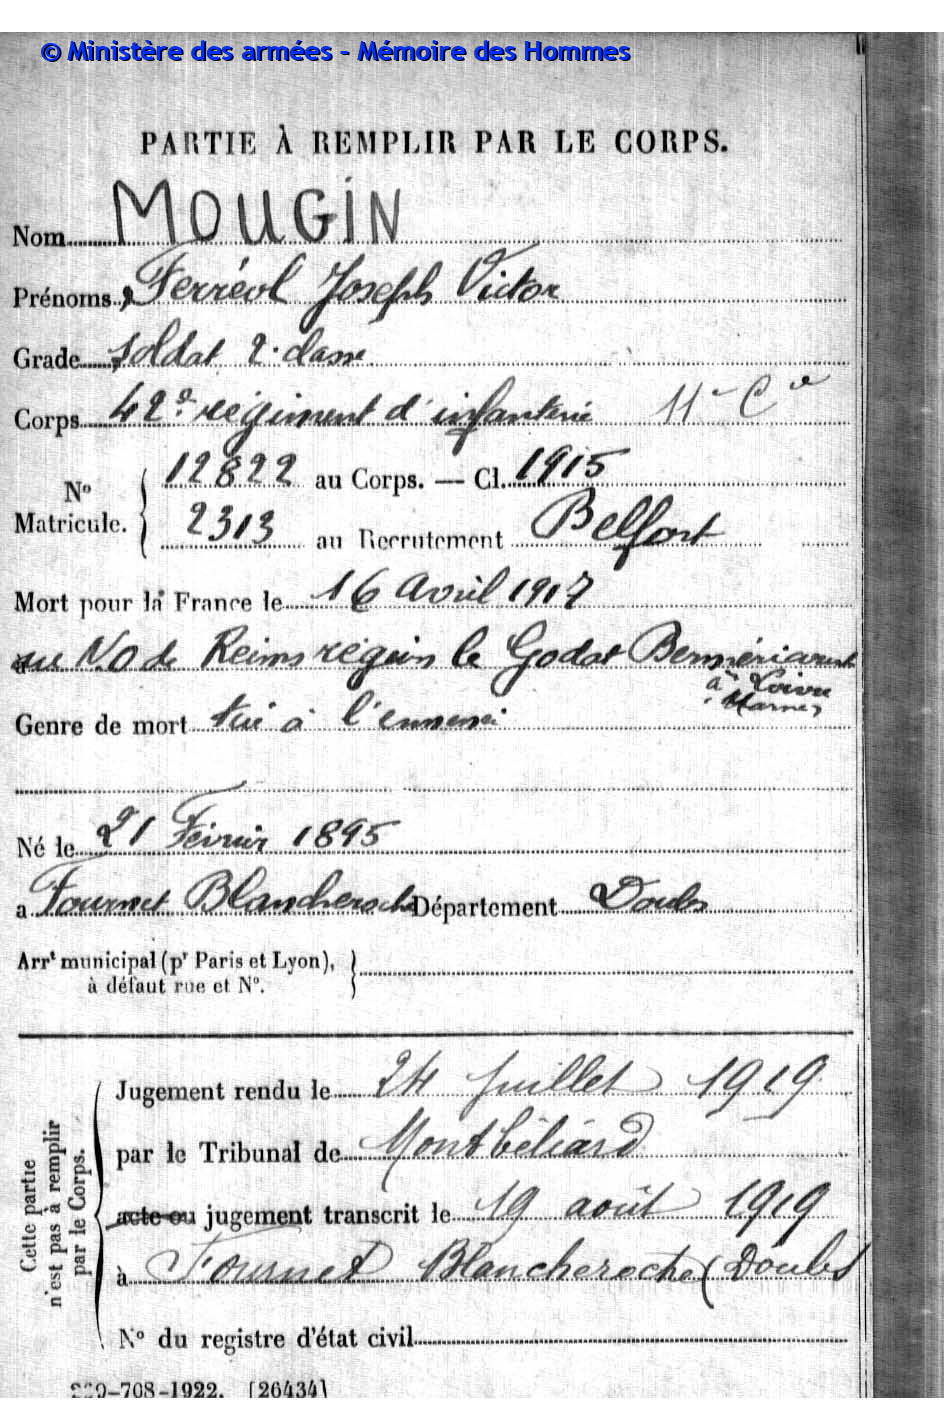 © Ministère des armées - Mémoire des Hommes
PARTIE À REMPLIR PAR LE CORPS.
Nom MOUGIN
Prénoms Ferréol Joseph Victor
Grade soldat 2e classe
Corps 42e régiment d'infanterie 11e Cie
No Matricule. 12822 au Corps. — Cl. 1915
2313 au Recrutement Belfort
Mort pour la France le 16 Avril 1917
au NO de Reims région le Godat Berméricourt
à Loivre
Marne
Genre de mort tué à l'ennemi
Né le 21 Février 1895
a Fournet Blancheroche Département Doubs
Arrt municipal (pr Paris et Lyon),
à défaut rue et No.
Cette partie n'est pas à remplir par le Corps.
Jugement rendu le 24 Juillet 1919
par le Tribunal de Montbéliard
acte ou jugement transcrit le 19 août 1919
à Fournet Blancheroche (Doubs
No du registre d'état civil
-708-1922. [26434]